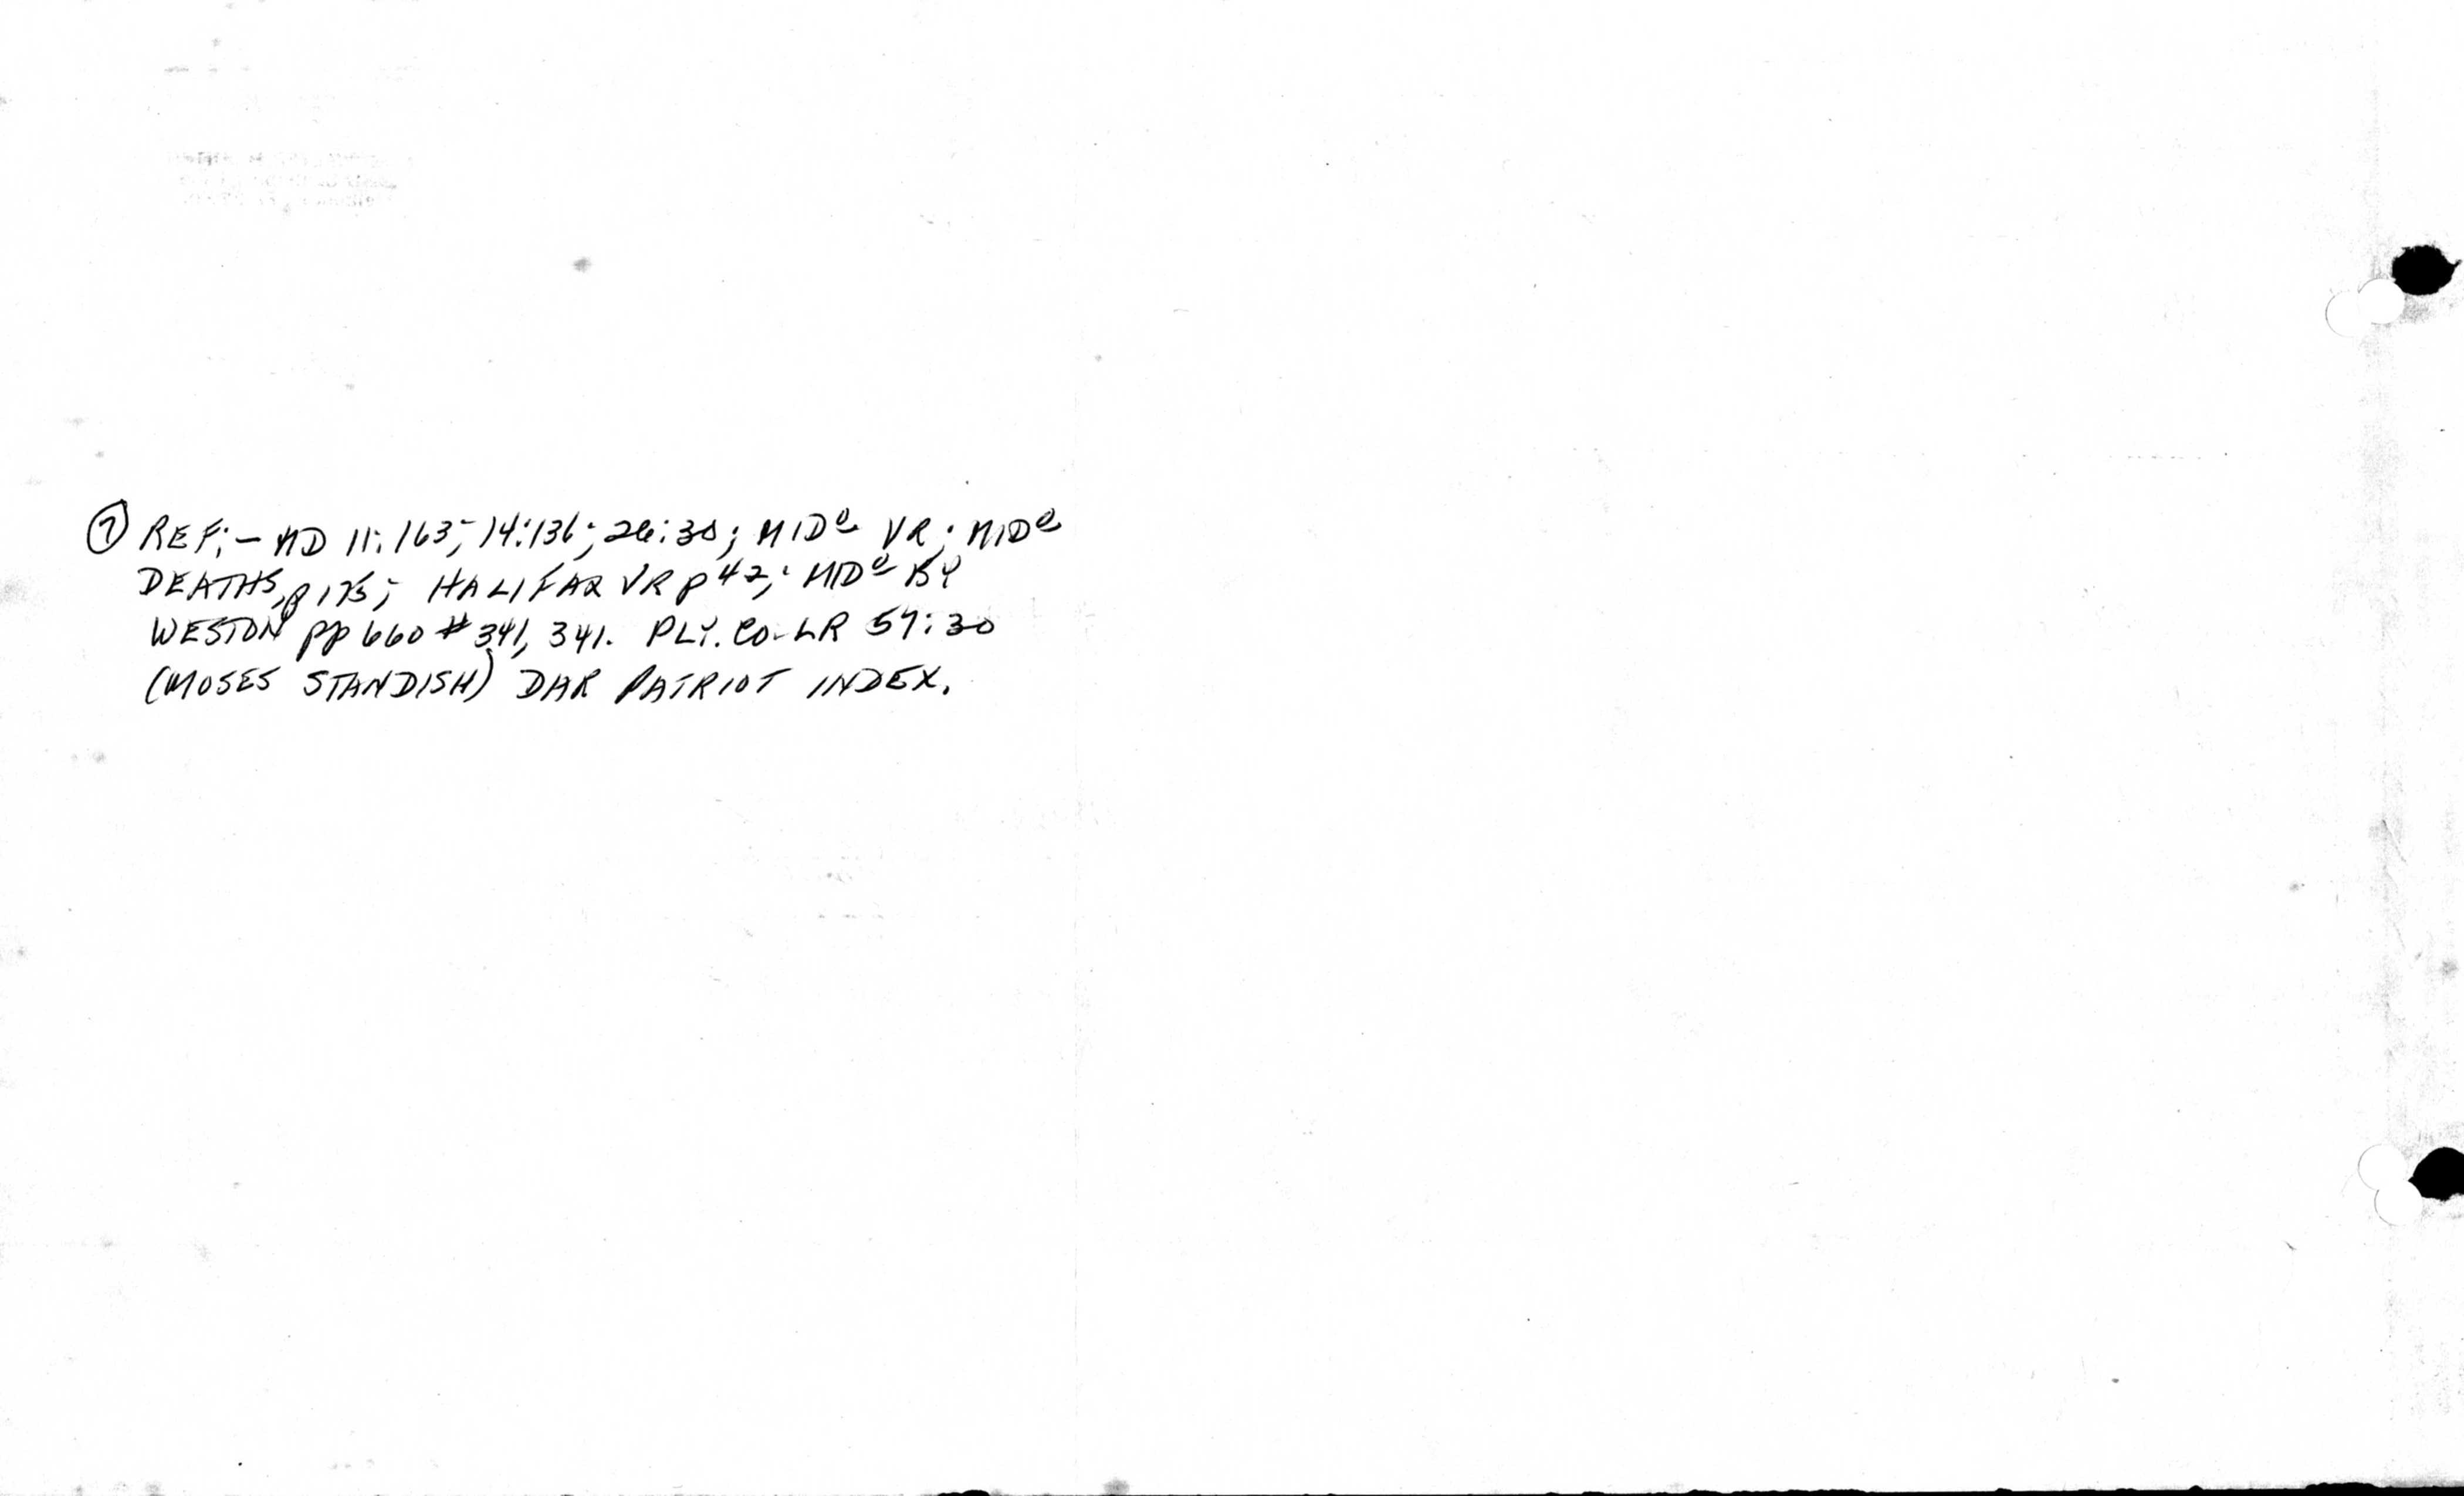 ⑦ REF:- MD 11:163; 14:136; 26:38; MIDᵒ VR; MIDᵒ
DEATHS, p 175; HALIFAX VR p 42; MIDᵒ BY
WESTON pp 660 # 341, 341. PLY. CO. LR 57:30
(MOSES STANDISH) DAR PATRIOT INDEX.